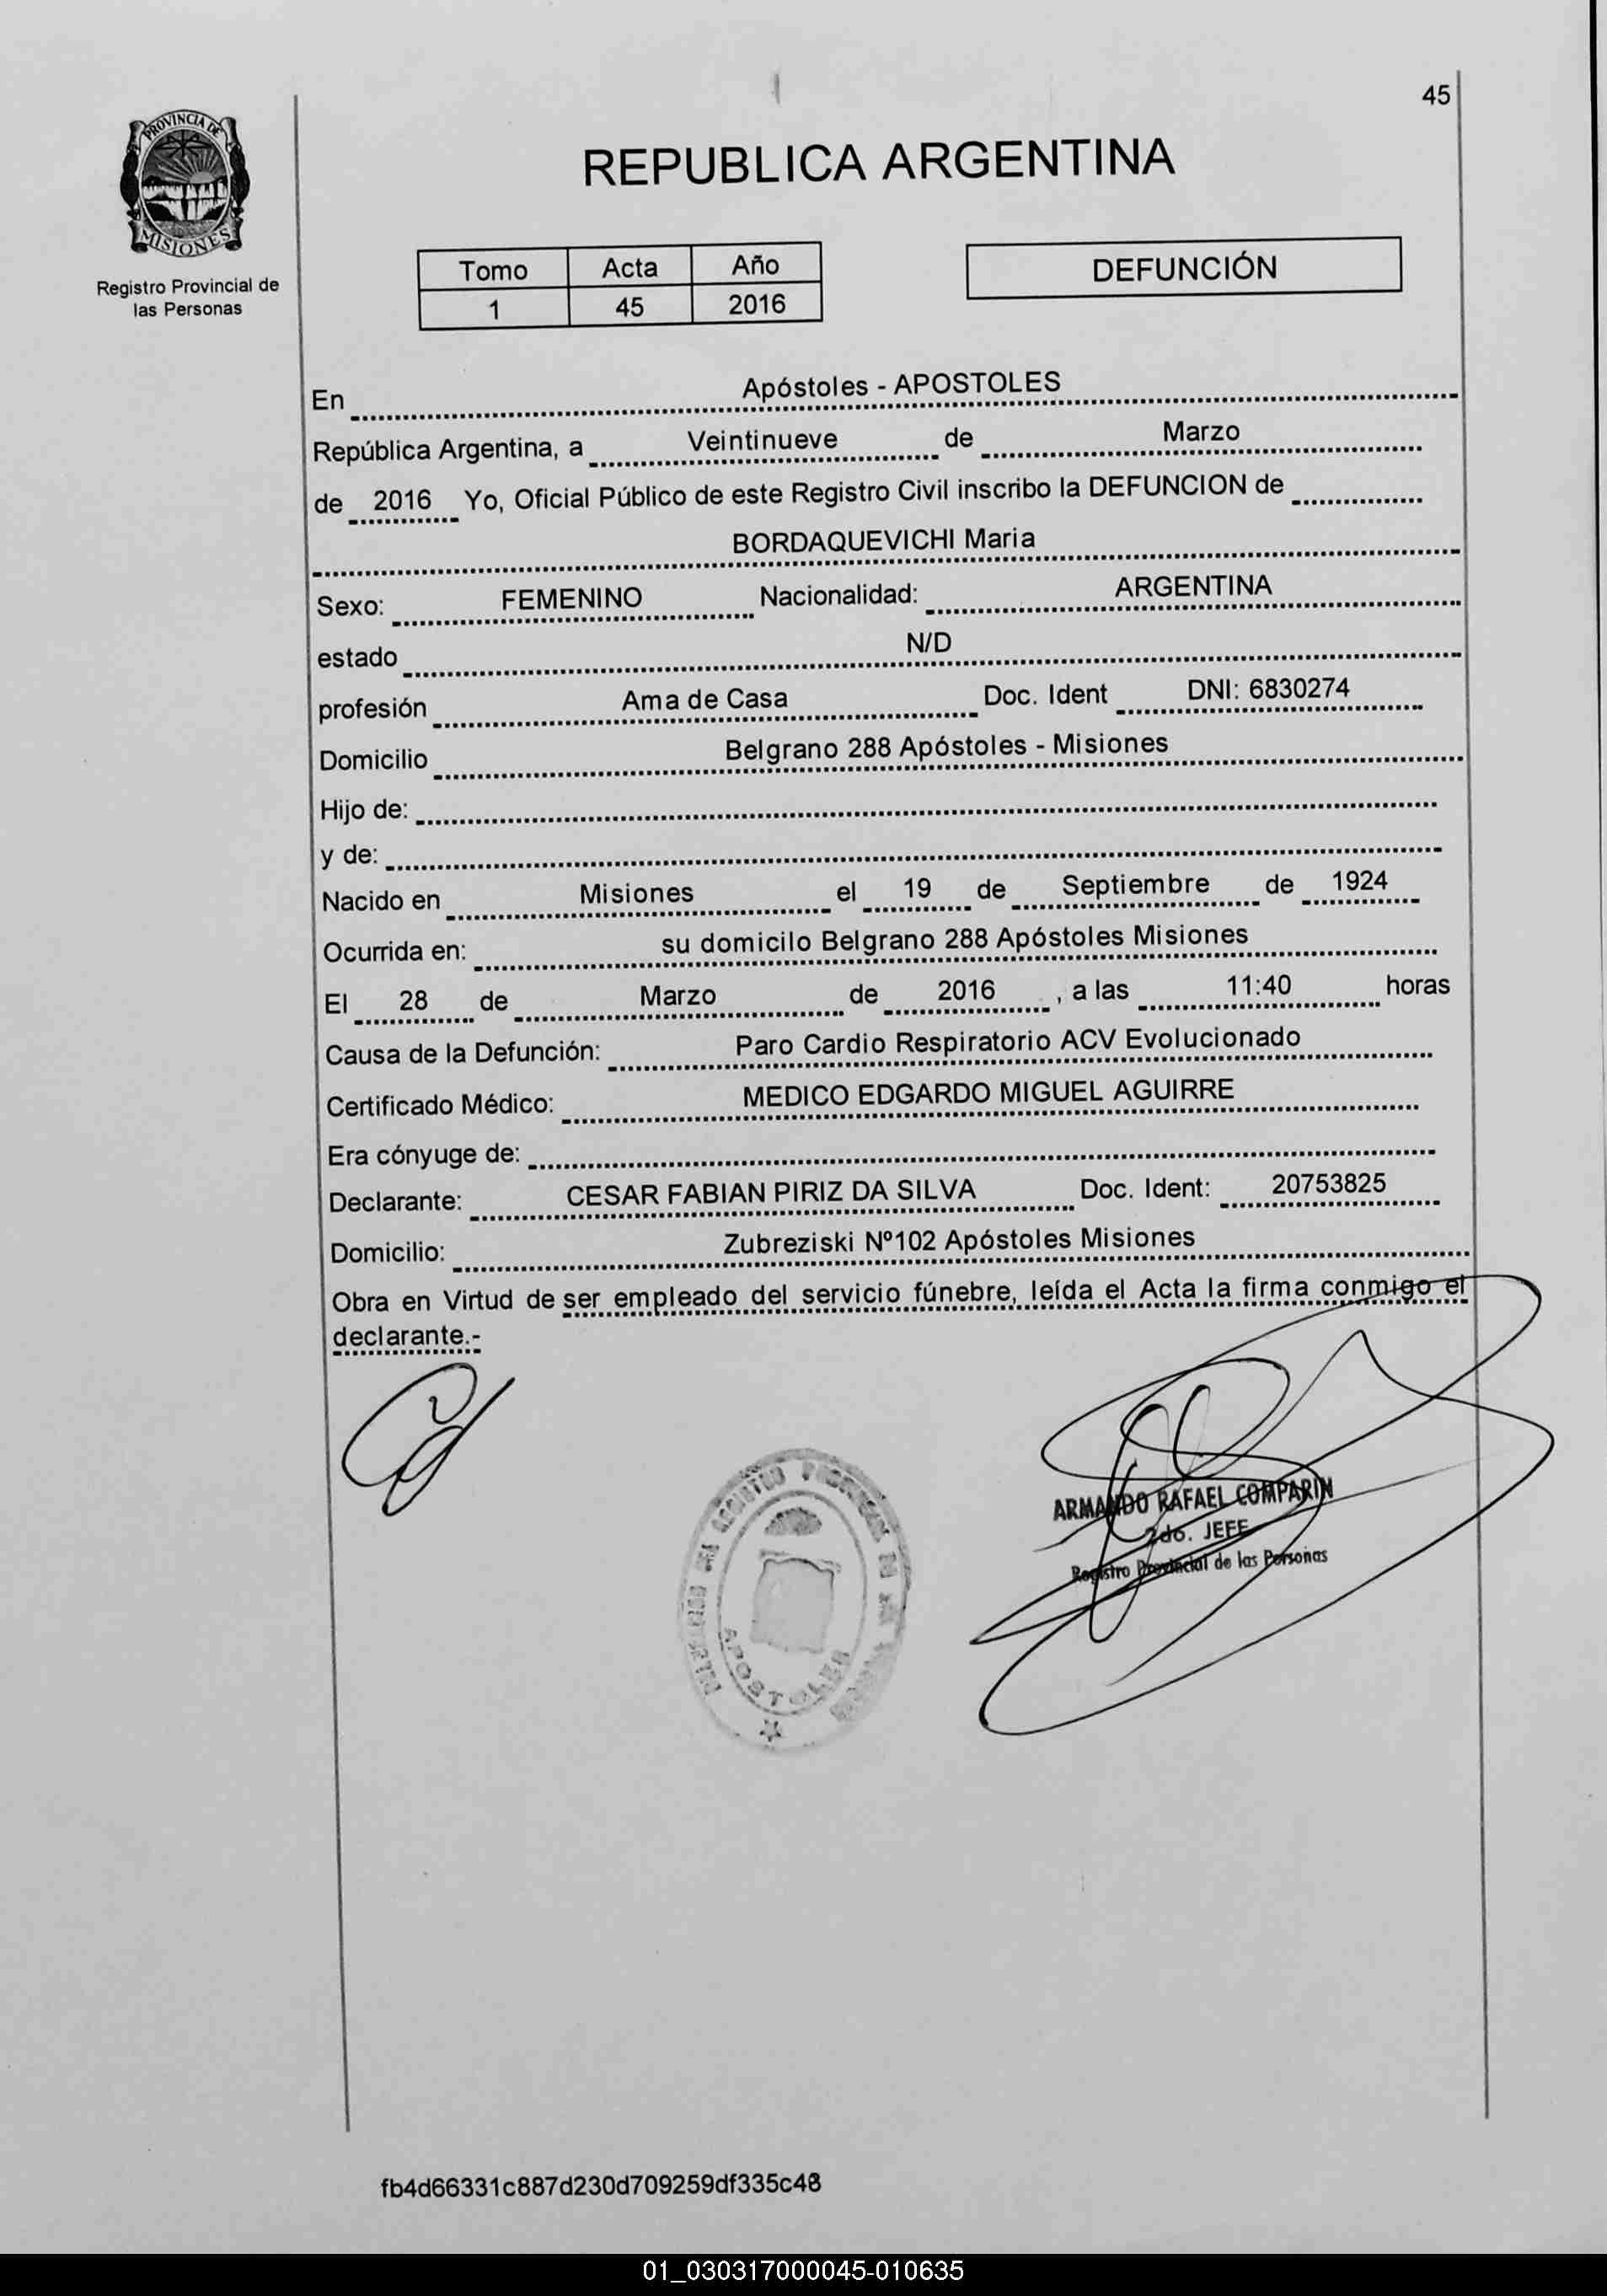 45
PROVINCIA DE
MISIONES
Registro Provincial de
las Personas
REPUBLICA ARGENTINA
Tomo Acta Año
1 45 2016
DEFUNCIÓN
En Apóstoles - APOSTOLES
República Argentina, a Veintinueve de Marzo
de 2016 Yo, Oficial Público de este Registro Civil inscribo la DEFUNCION de
BORDAQUEVICHI Maria
Sexo: FEMENINO Nacionalidad: ARGENTINA
estado N/D
profesión Ama de Casa Doc. Ident DNI: 6830274
Domicilio Belgrano 288 Apóstoles - Misiones
Hijo de:
y de:
Nacido en Misiones el 19 de Septiembre de 1924
Ocurrida en: su domicilo Belgrano 288 Apóstoles Misiones
El 28 de Marzo de 2016 , a las 11:40 horas
Causa de la Defunción: Paro Cardio Respiratorio ACV Evolucionado
Certificado Médico: MEDICO EDGARDO MIGUEL AGUIRRE
Era cónyuge de:
Declarante: CESAR FABIAN PIRIZ DA SILVA Doc. Ident: 20753825
Domicilio: Zubreziski Nº102 Apóstoles Misiones
Obra en Virtud de ser empleado del servicio fúnebre, leída el Acta la firma conmigo el
declarante.-
ARMANDO RAFAEL COMPARIN
2do. JEFE
Registro Provincial de las Personas
APOSTOLES
fb4d66331c887d230d709259df335c48
01_030317000045-010635